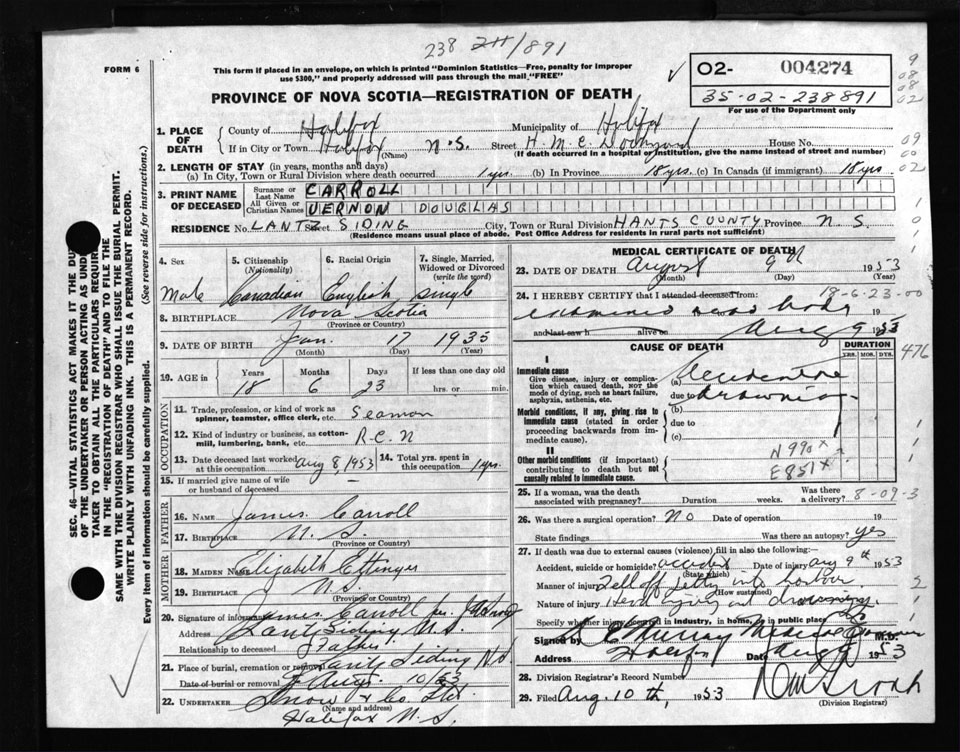 238 211/891
FORM 6
This form if placed in an envelope, on which is printed "Dominion Statistics—Free, penalty for improper
use $300," and properly addressed will pass through the mail "FREE"
02- 004274
35-02-238891
For use of the Department only
PROVINCE OF NOVA SCOTIA—REGISTRATION OF DEATH
1. PLACE OF DEATH
County of Halifax Municipality of Halifax
If in City or Town Halifax (Name) N.S. Street H.M.C. Dockyard House No.
(If death occurred in a hospital or institution, give the name instead of street and number)
2. LENGTH OF STAY (in years, months and days)
(a) In City, Town or Rural Division where death occurred 1 yrs. (b) In Province 18 yrs. (c) In Canada (if immigrant) 18 yrs
3. PRINT NAME OF DECEASED
Surname or Last Name CARROLL
All Given or Christian Names VERNON DOUGLAS
RESIDENCE No. LANTZ Street SIDING City, Town or Rural Division HANTS COUNTY Province N.S.
(Residence means usual place of abode. Post Office Address for residents in rural parts not sufficient)
4. Sex Male
5. Citizenship (Nationality) Canadian
6. Racial Origin English
7. Single, Married, Widowed or Divorced (write the word) single
8. BIRTHPLACE Nova Scotia
(Province or Country)
9. DATE OF BIRTH Jan. 17 1935
(Month) (Day) (Year)
10. AGE in Years 18 Months 6 Days 23 If less than one day old hrs. or min.
OCCUPATION
11. Trade, profession, or kind of work as spinner, teamster, office clerk, etc. Seaman
12. Kind of industry or business, as cotton-mill, lumbering, bank, etc. R.C.N
13. Date deceased last worked at this occupation Aug 8/1953
14. Total yrs. spent in this occupation 1 yrs.
15. If married give name of wife or husband of deceased
FATHER
16. NAME James Carroll
17. BIRTHPLACE N.S.
(Province or Country)
MOTHER
18. MAIDEN Name Elizabeth Ettinger
19. BIRTHPLACE N.S.
(Province or Country)
20. Signature of informant James Carroll per
Address Lantz Siding N.S.
Relationship to deceased Father
21. Place of burial, cremation or removal Lantz Siding N.S.
Date of burial or removal Aug. 10/53
22. UNDERTAKER Snow & Co. Ltd.
(Name and address)
Halifax N.S.
MEDICAL CERTIFICATE OF DEATH
23. DATE OF DEATH August 9th 1953
(Month) (Day) (Year)
18-6-23-00
24. I HEREBY CERTIFY that I attended deceased from:
examined dead body 19
and last saw h alive on Aug 9 1953
CAUSE OF DEATH
DURATION
YRS. MOS. DYS.
476
I
Immediate cause
Give disease, injury or complication which caused death, not the mode of dying, such as heart failure, asphyxia, asthenia, etc.
(a) Accidental
due to drowning
Morbid conditions, if any, giving rise to immediate cause (stated in order proceeding backwards from immediate cause).
(b)
due to
(c)
II
Other morbid conditions (if important) contributing to death but not causally related to immediate cause.
N990x
E851x
25. If a woman, was the death associated with pregnancy? Duration weeks. Was there a delivery? 8-09-3
26. Was there a surgical operation? No Date of operation 19
State findings Was there an autopsy? yes
27. If death was due to external causes (violence) fill in also the following:—
Accident, suicide or homicide? accident Date of injury Aug 9th 1953
(State which)
Manner of injury Fell off jetty into harbour
(How sustained)
Nature of injury Head injury and drowning
Specify whether injury occurred in industry, in home, or in public place
Signed by Murray Medical Examiner M.D.
Address Halifax Date Aug 9 1953
28. Division Registrar's Record Number
29. Filed Aug. 10th, 1953
(Division Registrar)
SEC. 46—VITAL STATISTICS ACT MAKES IT THE DUTY
OF THE UNDERTAKER OR PERSON ACTING AS UNDER-
TAKER TO OBTAIN ALL THE PARTICULARS REQUIRED
IN THE "REGISTRATION OF DEATH" AND TO FILE THE
SAME WITH THE DIVISION REGISTRAR WHO SHALL ISSUE THE BURIAL PERMIT.
WRITE PLAINLY WITH UNFADING INK. THIS IS A PERMANENT RECORD.
Every item of information should be carefully supplied. (See reverse side for instructions.)
9
08
08
02
09
00
02
1
0
1
0
1
1
1
1
5
1